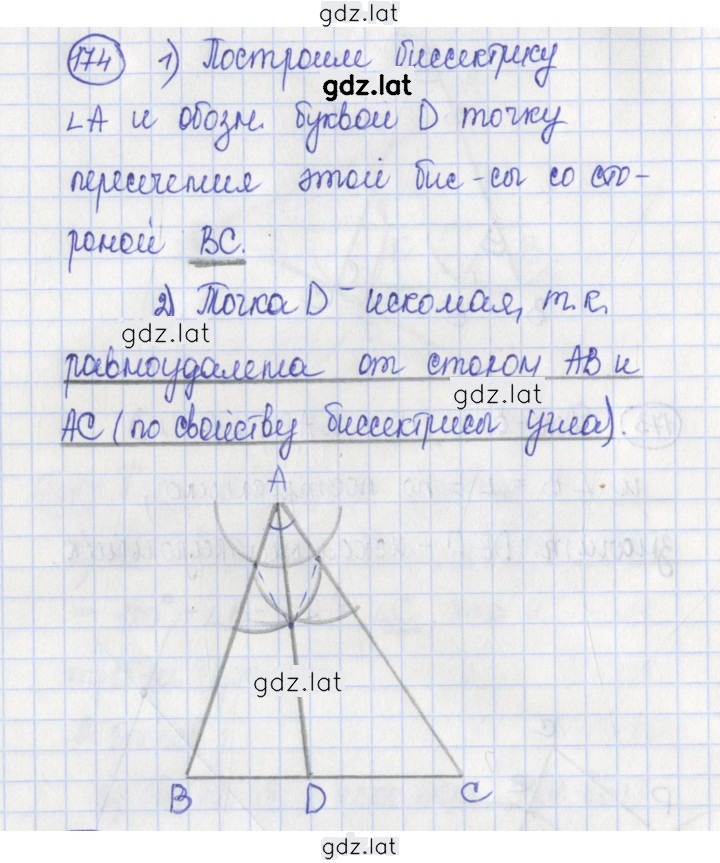 gdz.lat
174 1) Построим биссектрису
gdz.lat
∠A и обозн. буквой D точку
пересечения этой бис-сы со сто-
роной BC.
2) Точка D - искомая, т.к.
gdz.lat
равноудалена от сторон AB и
gdz.lat
AC (по свойству биссектрисы угла).
A
gdz.lat
B D C
gdz.lat